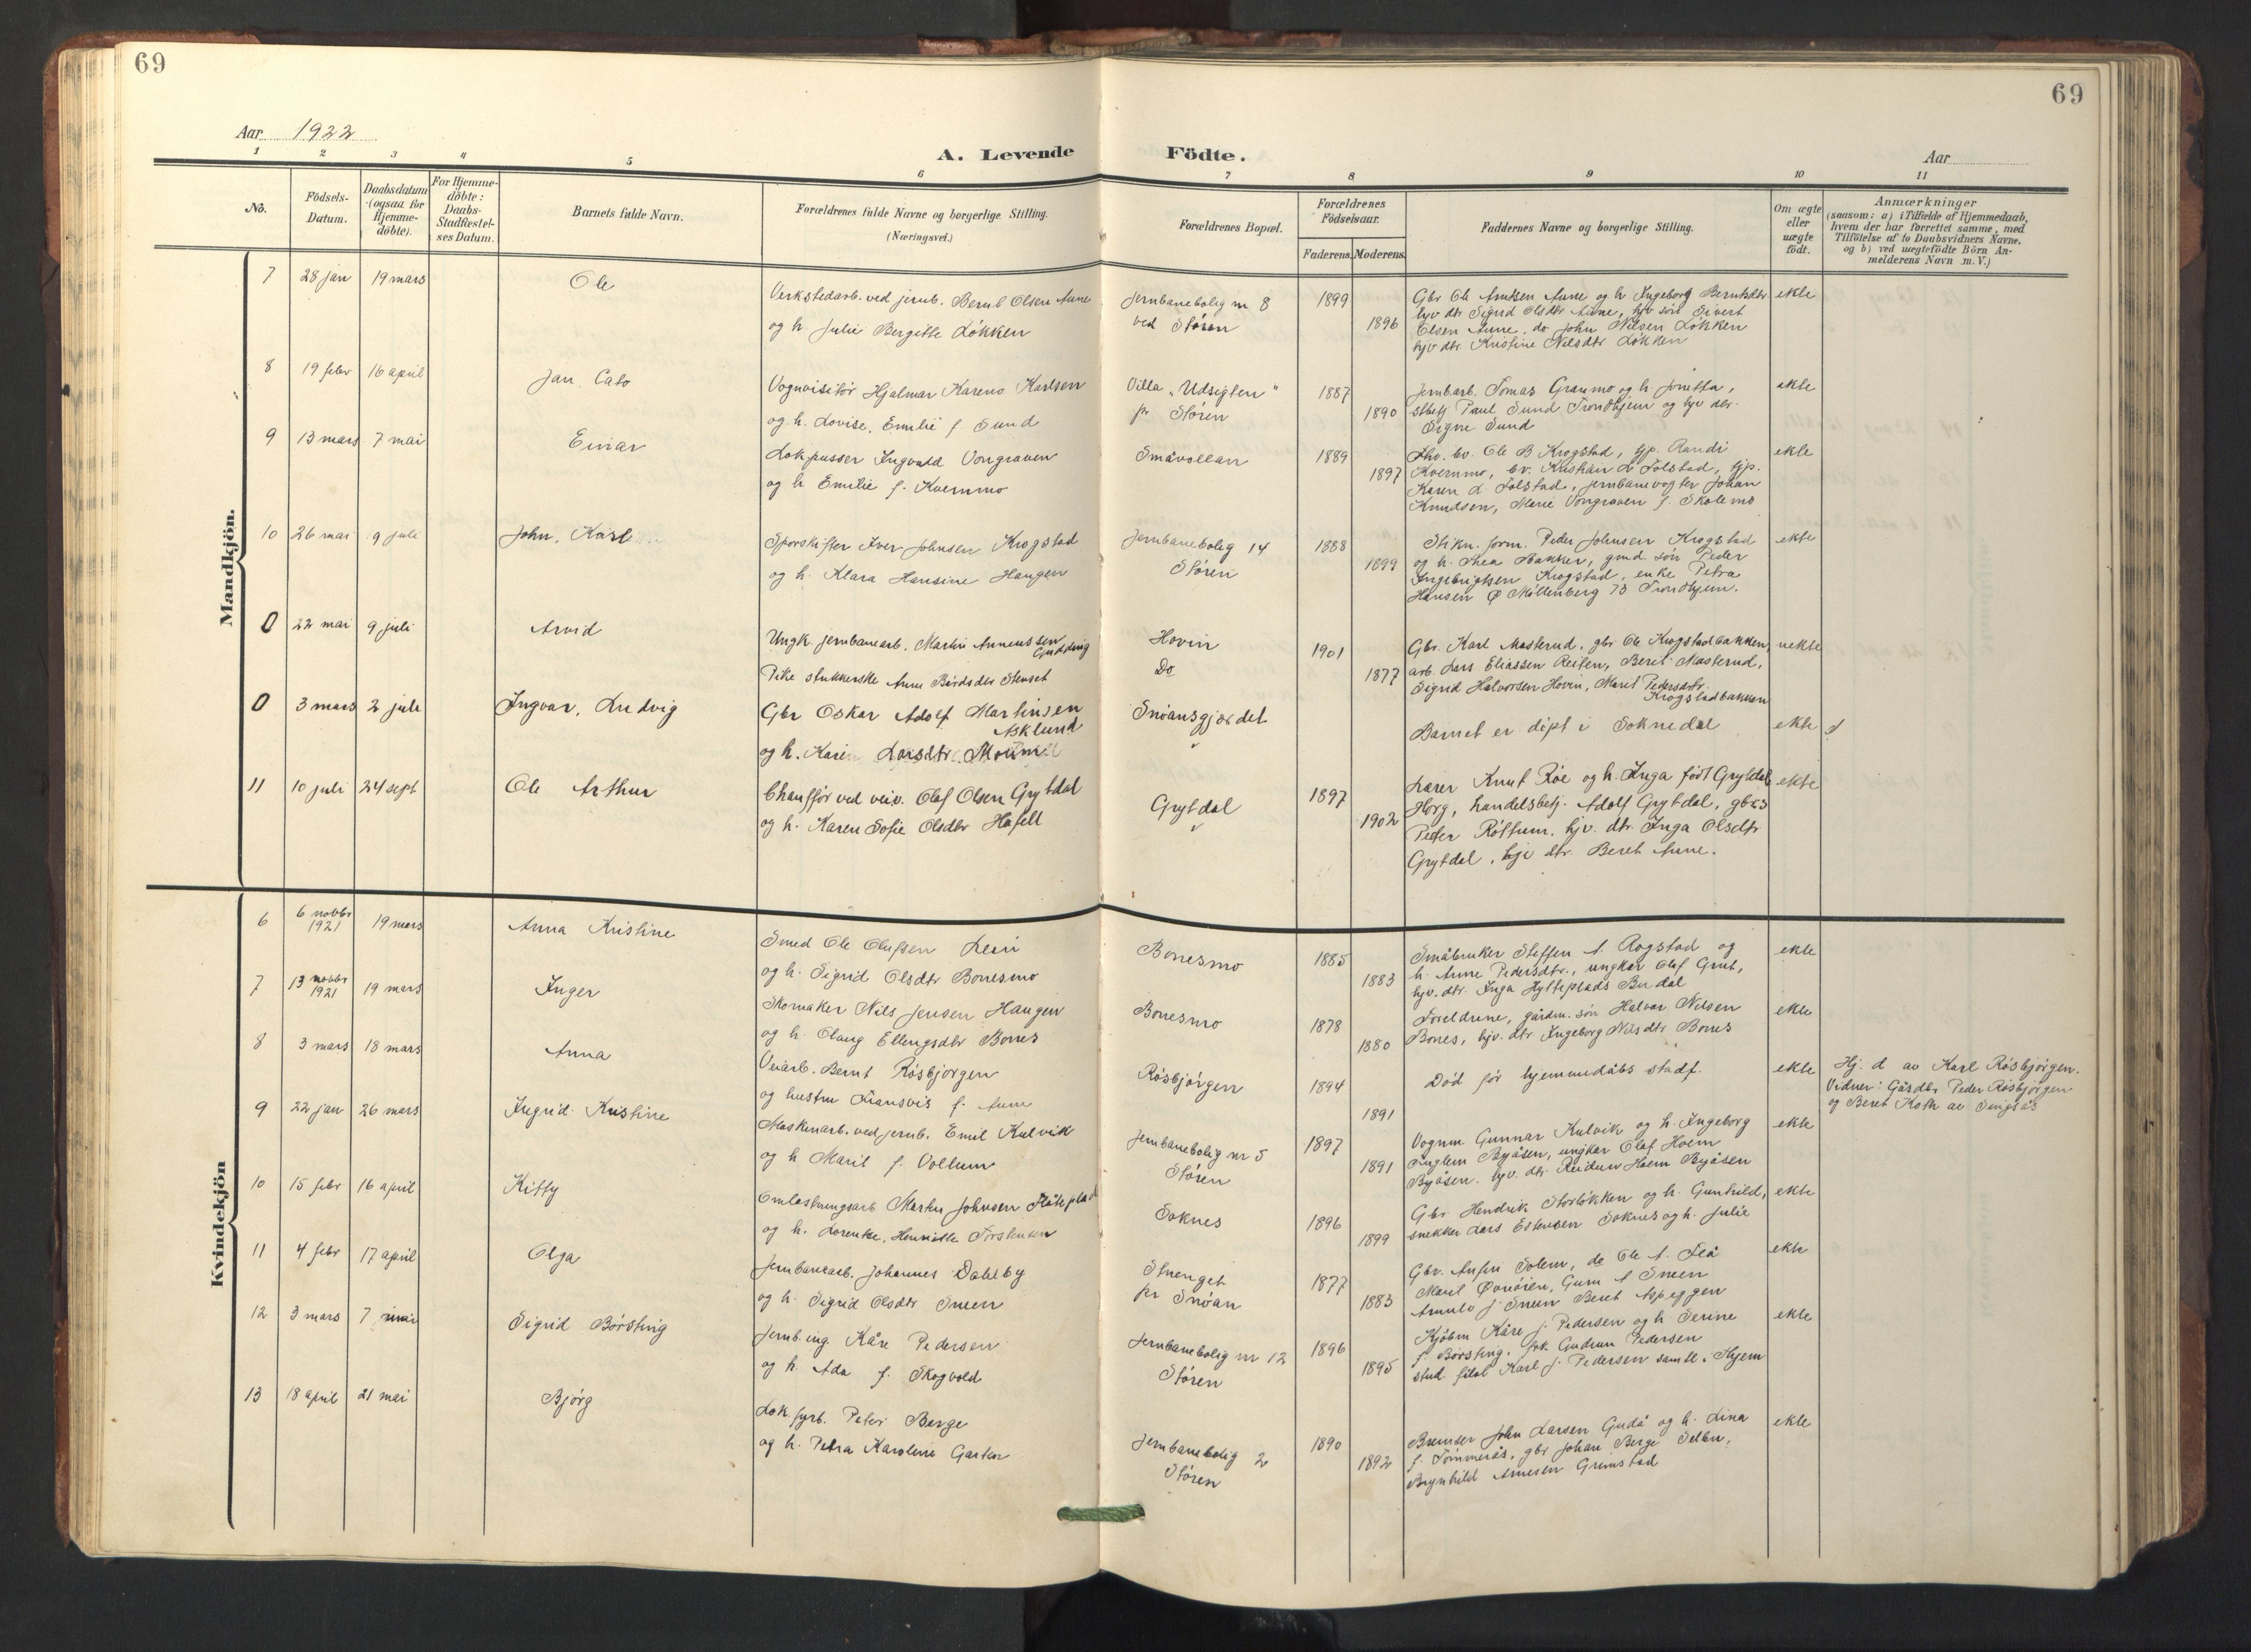 69
69
Aar 1922
A. Levende Födte.
Aar
1 2 3 4 5 6 7 8 9 10 11
No.
Födsels-
Datum.
Daabsdatum
(ogsaa for
Hjemme-
döbte).
For Hjemme-
döbte:
Daabs-
Stadfæstel-
ses Datum.
Barnets fulde Navn.
Forældrenes fulde Navne og borgerlige Stilling.
(Næringsvei.)
Forældrenes Bopæl.
Forældrenes
Födselsaar.
Faderens. Moderens.
Faddernes Navne og borgerlige Stilling.
Om ægte
eller
uægte
födt.
Anmærkninger
(saasom: a) i Tilfælde af Hjemmedaab,
hvem der har forrettet samme, med
Tilföielse af to Daabsvidners Navne,
og b) ved uægtefödte Börn An-
melderens Navn m. V.)
Mandkjön.
7 28 jan 19 mars Ole
Verkstedarb. ved jernb. Bernt Olsen Aune
og h. Julie Bergitte Løkken
Jernbanebolig nr 8
ved Støren
1899
1896
Gbr Ole Arntsen Aune og h Ingeborg Berntsdtr
hjv dtr Sigrid Olsdtr Aune, hjv søn Sivert
Olsen Aune, do John Nilsen Løkken
hjv dtr Kristine Nilsdtr Løkken
ekte
8 19 febr 16 april Jan, Cato
Vognvisitør Hjalmar Kareno Karlsen
og h. Lovise, Emilie f Sund
Villa "Udsigten"
pr Støren
1887
1890
Jernbarb. Tomas Granmo og h. Jonetta,
stbetj Paul Sund Trondhjem og hjv dtr.
Signe Sund
ekte
9 13 mars 7 mai Einar
Lokpusser Ingvald Vongraven
og h Emilie f. Kvernmo
Småvollan
1889
1897
Ole B Krogstad, tjp. Randi
Kvernmo, bv. Kristian L Folstad, tjp.
Karen L Folstad, jernbanevogter Johan
Knudsen, Marie Vongraven f. Skolemo
ekte
10 26 mai 9 juli John, Karl
Sporskifter Iver Johnsen Krogstad
og h. Klara Hansine Haugen
Jernbanebolig 14
Støren
1888
1899
Stikn. form. Peder Johnsen Krogstad
og h. Thea Bakken, gmd. søn Peder
Ingebrigtsen Krogstad, enke Petra
Hansen Ø Møllenberg 73 Trondhjem.
ekte
0 22 mai 9 juli Arvid
Ungk jernbanearb. Martin Anneussen
Gudding
Pike strikkerske Anne
Hovin
Do
1901
1877
Gbr. Karl Mosterud, gbr Ole Krogstadbakken,
arb Lars Eliassen Reiten, Beret Mosterud,
Sigrid Halvorsen Hovin, Marit Pedersdtr.
Krogstadbakken
uekte
0 3 mars 2 juli Ingvar, Ludvig
Gbr Oskar Adolf Martinsen
Asklund
og h. Karen Larsdtr.
Snøansgjerdet
Barnet er døpt i Soknedal
ekte
11 10 juli 24 sept Ole Arthur
Chauffør ved veiv. Olaf Olsen Grytdal
og h. Karen Sofie Olsdtr Hafell
Grytdal
1897
1902
Lærer Knut Røe og h. Inga født Grytdal
Horg, handelsbetj. Adolf Grytdal, gbrs
Peder Røttum, hjv. dtr. Inga Olsdtr
Grytdal, hjv dtr. Beret Aune.
ekte
Kvindekjön
6 6 novbr 1921 19 mars Anna Kristine
Smed Ole Olufsen Lein
og h. Sigrid Olsdtr Bonesmo
Bonesmo
1885
1883
Småbruker Steffen A. Rogstad og
h. Anne Pedersdtr., ungkar Olaf Grut,
hjv. dtr. Inga Hylteplads Budal
ekte
7 13 novbr 1921 19 mars Inger
Skomaker Nils Jensen Haugen
og h. Olaug Ellingsdtr Bones
Bonesmo
1878
1880
Foreldrene, gårdm. søn Halvar Nilsen
Bones, hjv. dtr. Ingeborg Nilsdtr Bones
ekte
8 3 mars 18 mars Anna
Veiarb. Bernt Røsbjørgen
og hustru f. Aune
Røsbjørgen
1894
1891
Død før hjemmedåbs stadf.
ekte
Hj. d av Karl Røsbjørgen.
Vidner: Gårdbr Peder Røsbjørgen
og Beret Koth av Singsås
9 22 jan 26 mars Ingrid Kristine
Maskinarb. ved jernb. Emil Kulvik
og h Marit f. Vollum
Jernbanebolig nr 5
Støren
1897
1891
Vognm Gunnar Kulvik og h. Ingeborg
Byåsen, ungkar Olaf Hoem
Byåsen. hjv. dtr. Reidun Hoem Byåsen
ekte
10 15 febr 16 april Kitty
Omlastningsarb Martin Johnsen
og h. Lorentse, Henriette Torstensen
Soknes
1896
1899
Gbr Hendrik Storløkken og h. Gunhild,
snekker Lars Estensen Soknes og h. Julie
ekte
11 4 febr 17 april Olga
Jernbanearb. Johannes Dahlby
og h. Sigrid Olsdtr Sneen
Strenget
pr Snøan
1877
1883
Gbr. Anfin Solem, do Ole A. Flå
Marit Gurn A Sneen
f. Sneen Beret Aspeggen
ekte
12 3 mars 7 mai Sigrid Børsting
Jernb. ing. Kåre Pedersen
og h. Ada f. Skogvold
Jernbanebolig nr 12
Støren
1896
1895
Kjøbm Kåre J. Pedersen og h Serine
f. Børsting. frk Gudrun Pedersen
stud. filol Karl J. Pedersen samtl. i Hjem
ekte
13 18 april 21 mai Bjørg
Lok.fyrb. Peter Berge
og h. Petra Karoline Garten
Jernbanebolig 2
Støren
1890
1892
Bremser John Larsen Gudå og h. Lina
f. Tømmerås, gbr Johan Berge Selbu,
Brynhild Arnesen Grimstad
ekte